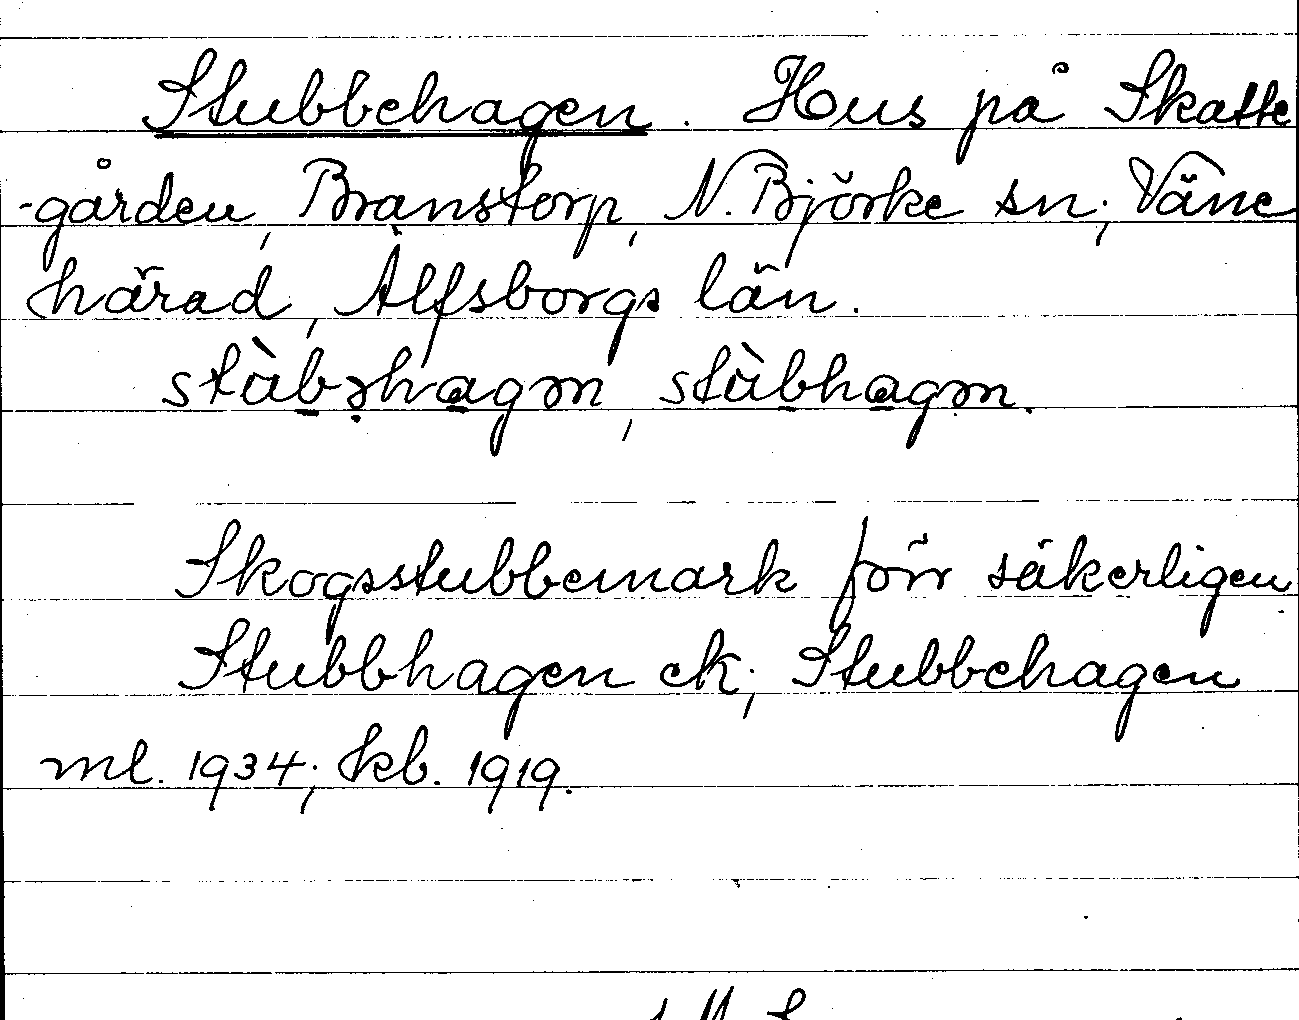 Stubbehagen. Hus på Skatte
-gården, Branstorp, N. Björke sn; Väne
härad, Älfsborgs län.
stàbəhagən, stàbhagən.
Skogsstubbemark förr säkerligen
Stubbhagen ek; Stubbehagen
ml. 1934; kb. 1919.